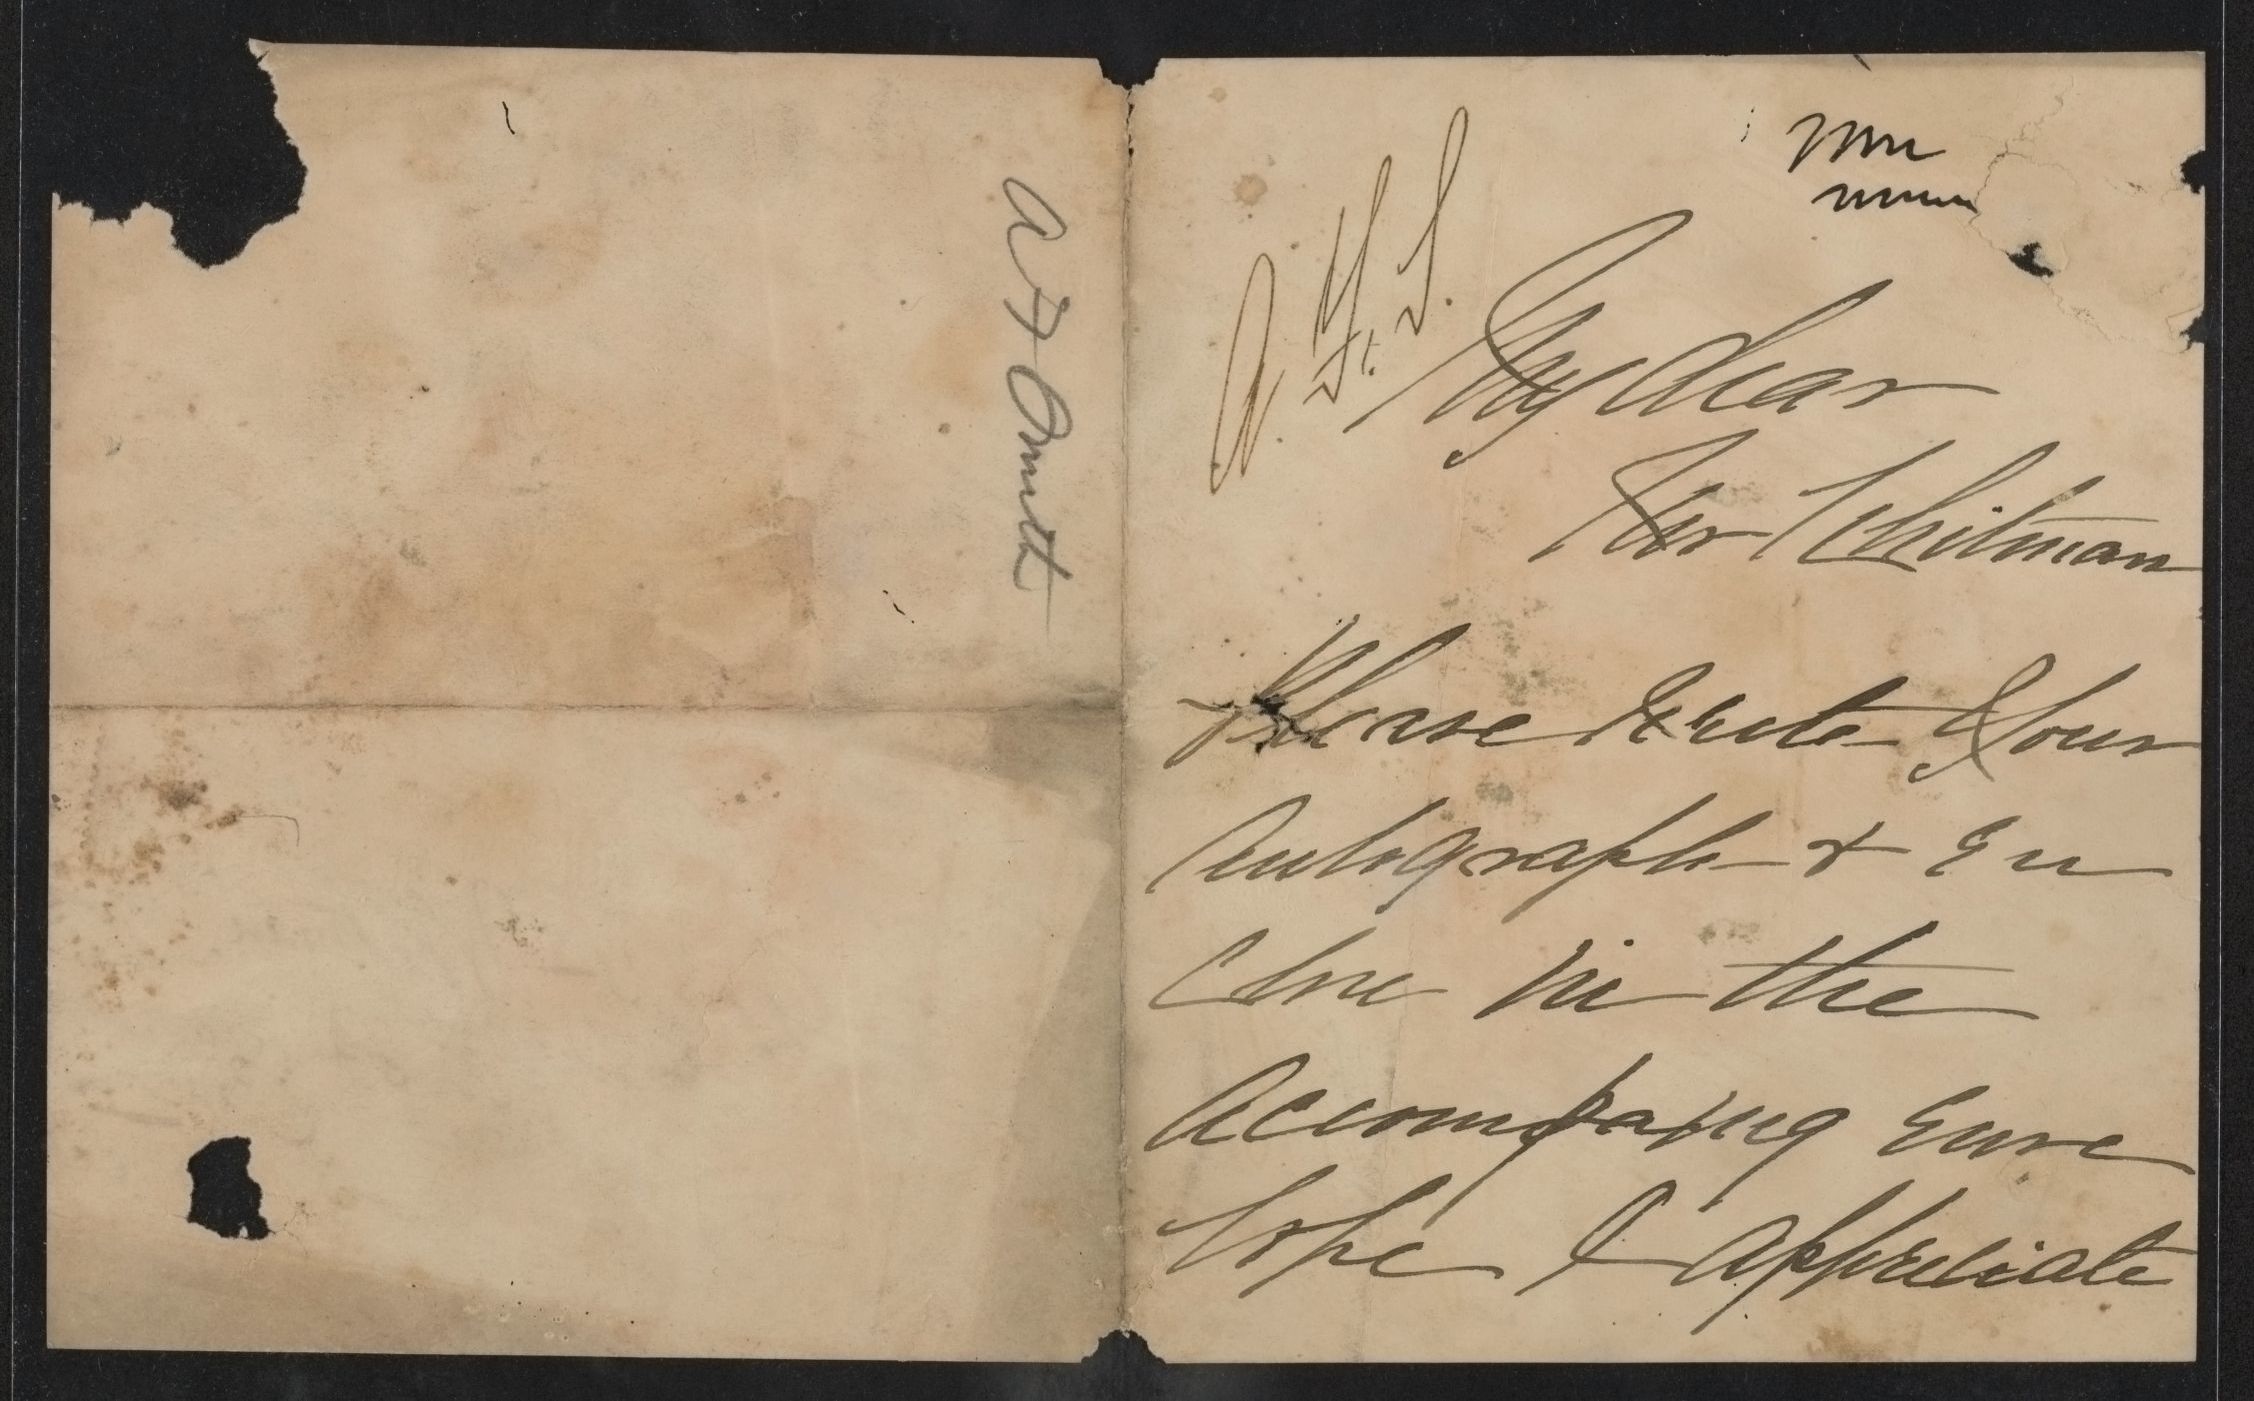 A. F. S.
My dear
Mr Whitman
Please write Your
Autograph & En
Close in the
Accompaying Enve
lope I appreciate